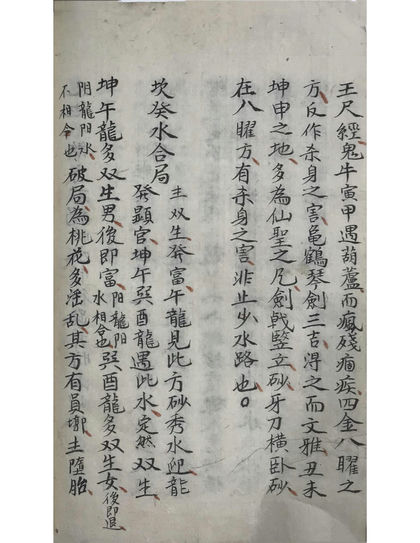 王尺經鬼牛寅甲遇葫蘆而瘋殘痼疾四金八曜之
方反作杀身之害龟鶴琴劍三吉得之而文雅丑未
坤申之地多為仙聖之凡劍戟豎立砂牙刀横卧砂
在八曜方有杀身之害非止少水路也。
坎癸水合局
主双生發富午龍見此方砂秀水迎龍
發顯官坤午巽酉龍遇此水定然双生
坤午龍多双生男後即富阳龍阳水相合也巽酉龍多双生女後即退
阴龍阳水不相合也破局為桃花多淫乱其方有員墩主墮胎